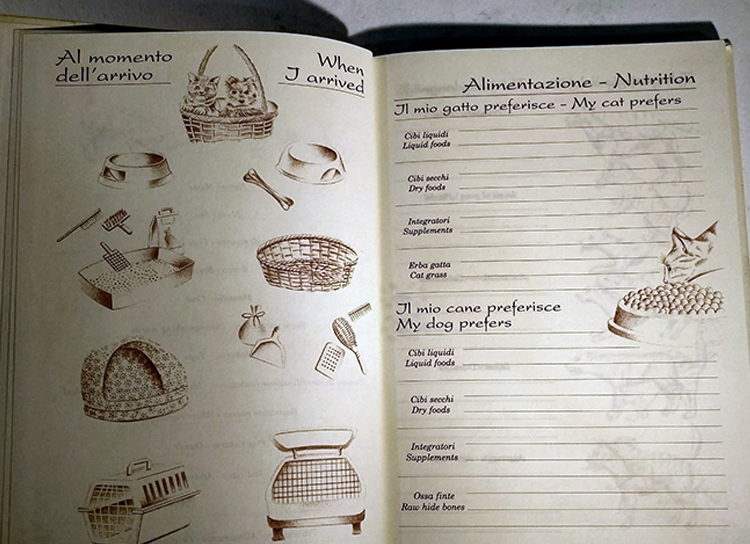 Al momento
dell'arrivo
When
I arrived
Alimentazione - Nutrition
Il mio gatto preferisce - My cat prefers
Cibi liquidi
Liquid foods
Cibi secchi
Dry foods
Integratori
Supplements
Erba gatta
Cat grass
Il mio cane preferisce
My dog prefers
Cibi liquidi
Liquid foods
Cibi secchi
Dry foods
Integratori
Supplements
Ossa finte
Raw hide bones